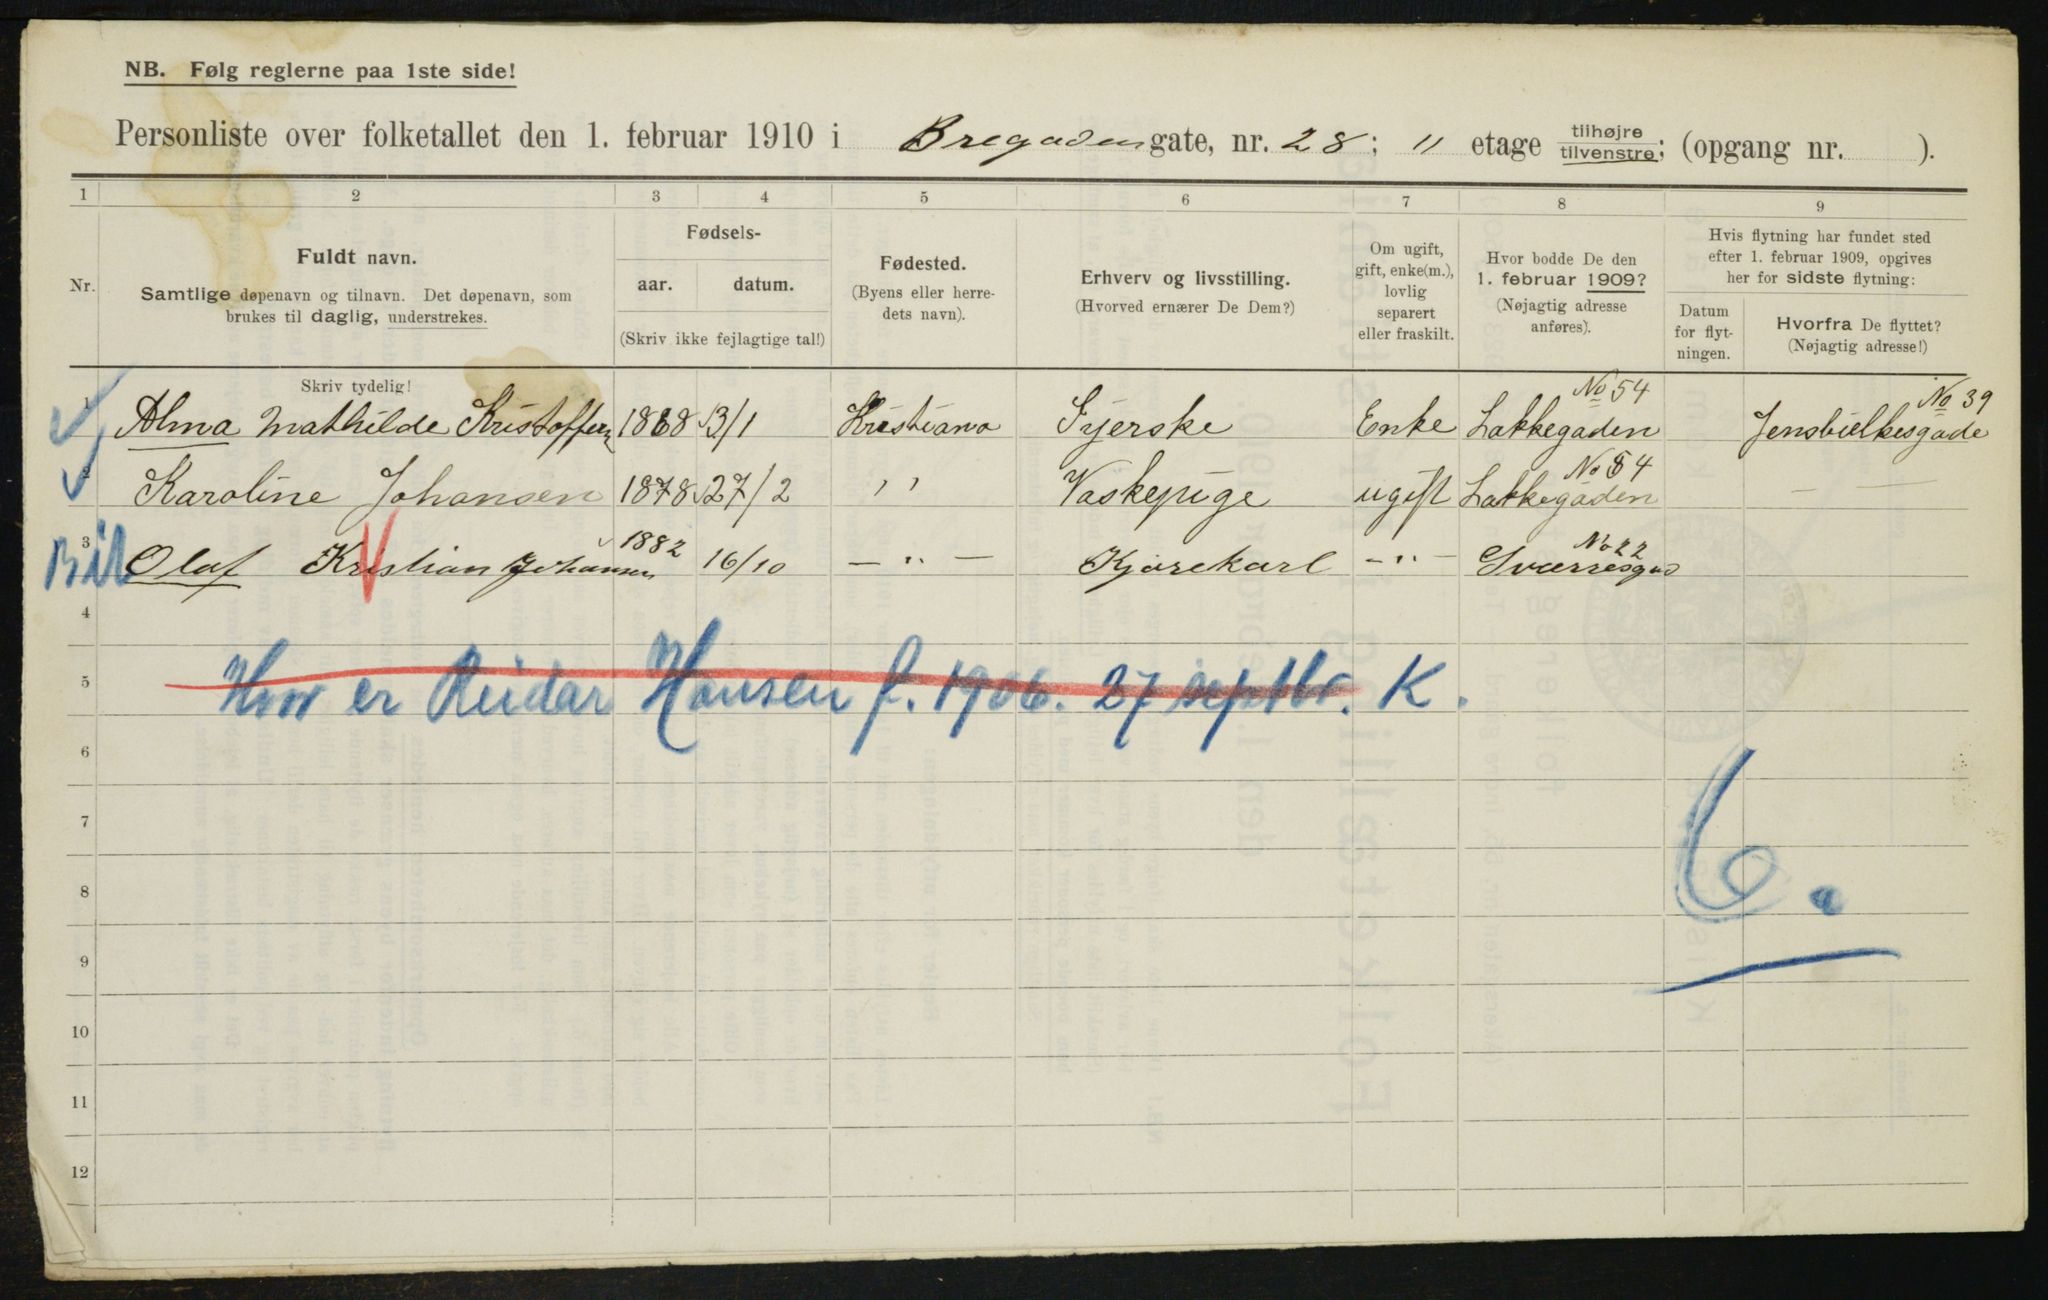 NB. Følg reglerne paa 1ste side!
Personliste over folketallet den 1. februar 1910 i Bregaden gate, nr. 28; 11 etage tilhøjre tilvenstre; (opgang nr. ).
1 2 3 4 5 6 7 8 9
Nr.
Fuldt navn.
Samtlige døpenavn og tilnavn. Det døpenavn, som
brukes til daglig, understrekes.
Skriv tydelig!
Fødsels-
aar. datum.
(Skriv ikke fejlagtige tal!)
Fødested.
(Byens eller herre-
dets navn).
Erhverv og livsstilling.
(Hvorved ernærer De Dem?)
Om ugift,
gift, enke(m.),
lovlig
separert
eller fraskilt.
Hvor bodde De den
1. februar 1909?
(Nøjagtig adresse
anføres).
Hvis flytning har fundet sted
efter 1. februar 1909, opgives
her for sidste flytning:
Datum
for flyt-
ningen.
Hvorfra De flyttet?
(Nøjagtig adresse!)
No 54 No 39
1 Alma Mathilde Kristoffersen 13/1 Kristiana Syerske Enke Lakkegaden Jensbielkesgade
No 54
2 Karoline Johansen 1878 27/2 " Vaskepige ugift Lakkegaden — —
1882 No 22
3 Bil Olaf Kristian Johansen 16/10 — " — Kjørekarl — " — Sværresgad
4
5 Hvor er Reidar Hansen f. 1906. 27 septbr. K.
6
6.
7
8
9
10
11
12